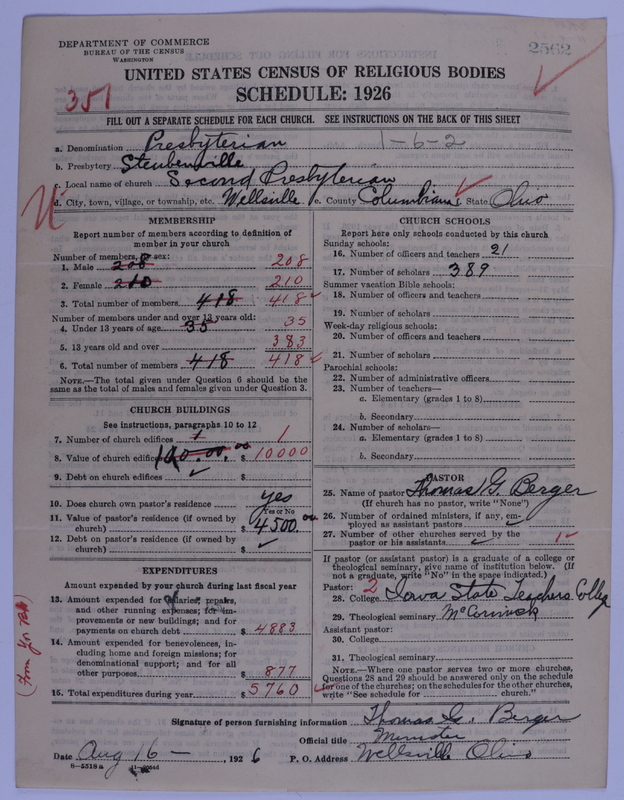 DEPARTMENT OF COMMERCE
BUREAU OF THE CENSUS
WASHINGTON
2562
UNITED STATES CENSUS OF RELIGIOUS BODIES
SCHEDULE: 1926
351
FILL OUT A SEPARATE SCHEDULE FOR EACH CHURCH. SEE INSTRUCTIONS ON THE BACK OF THIS SHEET
a. Denomination Presbyterian 1-6-2
b. Presbytery Steubenville
c. Local name of church Second Presbyterian
d. City, town, village, or township, etc. Wellsville e. County Columbiana f. State Ohio
MEMBERSHIP
Report number of members according to definition of
member in your church
Number of members, by sex:
1. Male 208 208
2. Female 210 210
3. Total number of members 418 418
Number of members under and over 13 years old:
4. Under 13 years of age 35 35
5. 13 years old and over 383
6. Total number of members 418 418
NOTE.—The total given under Question 6 should be the
same as the total of males and females given under Question 3.
CHURCH BUILDINGS
See instructions, paragraphs 10 to 12
7. Number of church edifices 1 1
8. Value of church edifices $ 10000
9. Debt on church edifices $
10. Does church own pastor's residence yes
Yes or No
11. Value of pastor's residence (if owned by
church) $ 4500.00
12. Debt on pastor's residence (if owned by
church) $
EXPENDITURES
Amount expended by your church during last fiscal year
13. Amount expended for salaries, repairs,
and other running expenses; for im-
provements or new buildings; and for
payments on church debt $ 4883
14. Amount expended for benevolences, in-
cluding home and foreign missions; for
denominational support; and for all
other purposes $ 877
15. Total expenditures during year $ 5760
CHURCH SCHOOLS
Report here only schools conducted by this church
Sunday schools:
16. Number of officers and teachers 21
17. Number of scholars 389
Summer vacation Bible schools:
18. Number of officers and teachers
19. Number of scholars
Week-day religious schools:
20. Number of officers and teachers
21. Number of scholars
Parochial schools:
22. Number of administrative officers
23. Number of teachers—
a. Elementary (grades 1 to 8)
b. Secondary
24. Number of scholars—
a. Elementary (grades 1 to 8)
b. Secondary
PASTOR
25. Name of pastor Thomas G. Berger
(If church has no pastor, write "None")
26. Number of ordained ministers, if any, em-
ployed as assistant pastors
27. Number of other churches served by the
pastor or his assistants 1
If pastor (or assistant pastor) is a graduate of a college or
theological seminary, give name of institution below. (If
not a graduate, write "No" in the space indicated.)
Pastor: 2
28. College Iowa State Teachers College
29. Theological seminary McCormick
Assistant pastor:
30. College
31. Theological seminary
NOTE.—Where one pastor serves two or more churches,
Questions 28 and 29 should be answered only on the schedule
for one of the churches; on the schedules for the other churches,
write "See schedule for church."
Signature of person furnishing information Thomas G. Berger
Official title Minister
Date Aug 16 — , 1926 P. O. Address Wellsville Ohio
8—5518 a